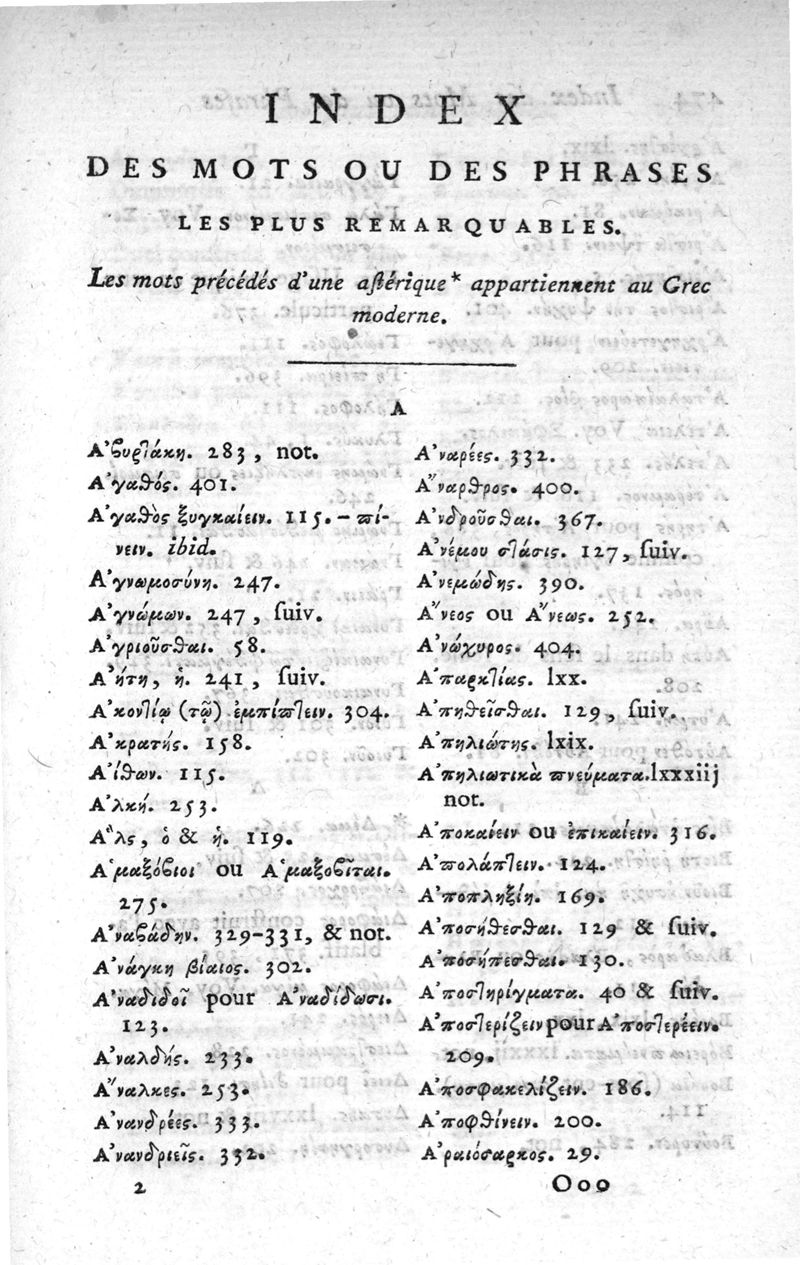 INDEX
DES MOTS OU DES PHRASES
LES PLUS REMARQUABLES.
Les mots précédés d'une aſtérique* appartiennent au Grec
moderne.
A
Ἀϐυρτάκη. 283, not.
Ἀγαθός. 401.
Ἀγαθὸς ξυγκαίειν. 115. — πί-
νειν. ibid.
Ἀγνωμοσύνη. 247.
Ἀγνώμων. 247, ſuiv.
Ἀγριοῦσθαι. 58.
Ἀήτη, ἡ. 241, ſuiv.
Ἀκοντίῳ (τῷ) ἐμπίπτειν. 304.
Ἀκρατής. 158.
Ἀίθων. 115.
Ἀλκή. 253.
Ἅλς, ὁ & ἡ. 119.
Ἁμαξόϐιοι ou Ἁμαξοϐῖται.
275.
Ἀναϐάδην. 329-331, & not.
Ἀνάγκη βίαιος. 302.
Ἀναδιδοῖ pour Ἀναδίδωσι.
123.
Ἀναλδής. 233.
Ἄναλκες. 253.
Ἀνανδρέες. 333.
Ἀνανδριεῖς. 332.
2
Ἀναρέες. 332.
Ἄναρθρος. 400.
Ἀνδροῦσθαι. 367.
Ἀνέμου στάσις. 127, ſuiv.
Ἀνεμώδης. 390.
Ἄνεος ou Ἄνεως. 252.
Ἀνώχυρος. 404.
Ἀπαρκτίας. lxx.
Ἀπηθεῖσθαι. 129, ſuiv.
Ἀπηλιώτης. lxix.
Ἀπηλιωτικὰ πνεύματα. lxxxiij
not.
Ἀποκαίειν ou ἐπικαίειν. 316.
Ἀπολάπτειν. 124.
Ἀποπληξίη. 169.
Ἀποσήθεσθαι. 129 & ſuiv.
Ἀποσήπεσθαι. 130.
Ἀποστηρίγματα. 40 & ſuiv.
Ἀποστερίζειν pour Ἀποστερέειν.
209.
Ἀποσφακελίζειν. 186.
Ἀποφθίνειν. 200.
Ἀραιόσαρκος. 29.
Ooo